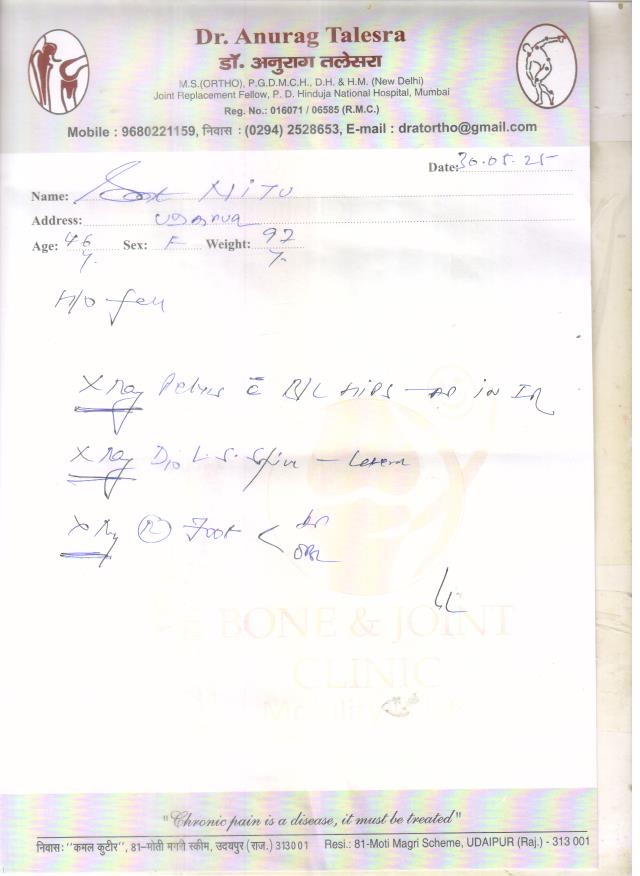 Dr. Anurag Talesra
डॉ. अनुराग तलेसरा
M.S.(ORTHO), P.G.D.M.C.H., D.H. & H.M. (New Delhi)
Joint Replacement Fellow, P. D. Hinduja National Hospital, Mumbai
Reg. No.: 016071 / 06585 (R.M.C.)
Mobile : 9680221159, निवास : (0294) 2528653, E-mail : dratortho@gmail.com
Date: 30.05.25
Name: Nitu
Address:
Age: 46 y. Sex: F Weight: 92
H/O fall
X Ray Pelvis c̄ B/L HIPS — AP in IR
X Ray L.S. Spine — Lateral
X Ray (R) Foot < AP
OBL
BONE & JOINT
CLINIC
"Chronic pain is a disease, it must be treated"
निवास: "कमल कुटीर", 81-मोती मगरी स्कीम, उदयपुर (राज.) 313001 Resi.: 81-Moti Magri Scheme, UDAIPUR (Raj.) - 313 001